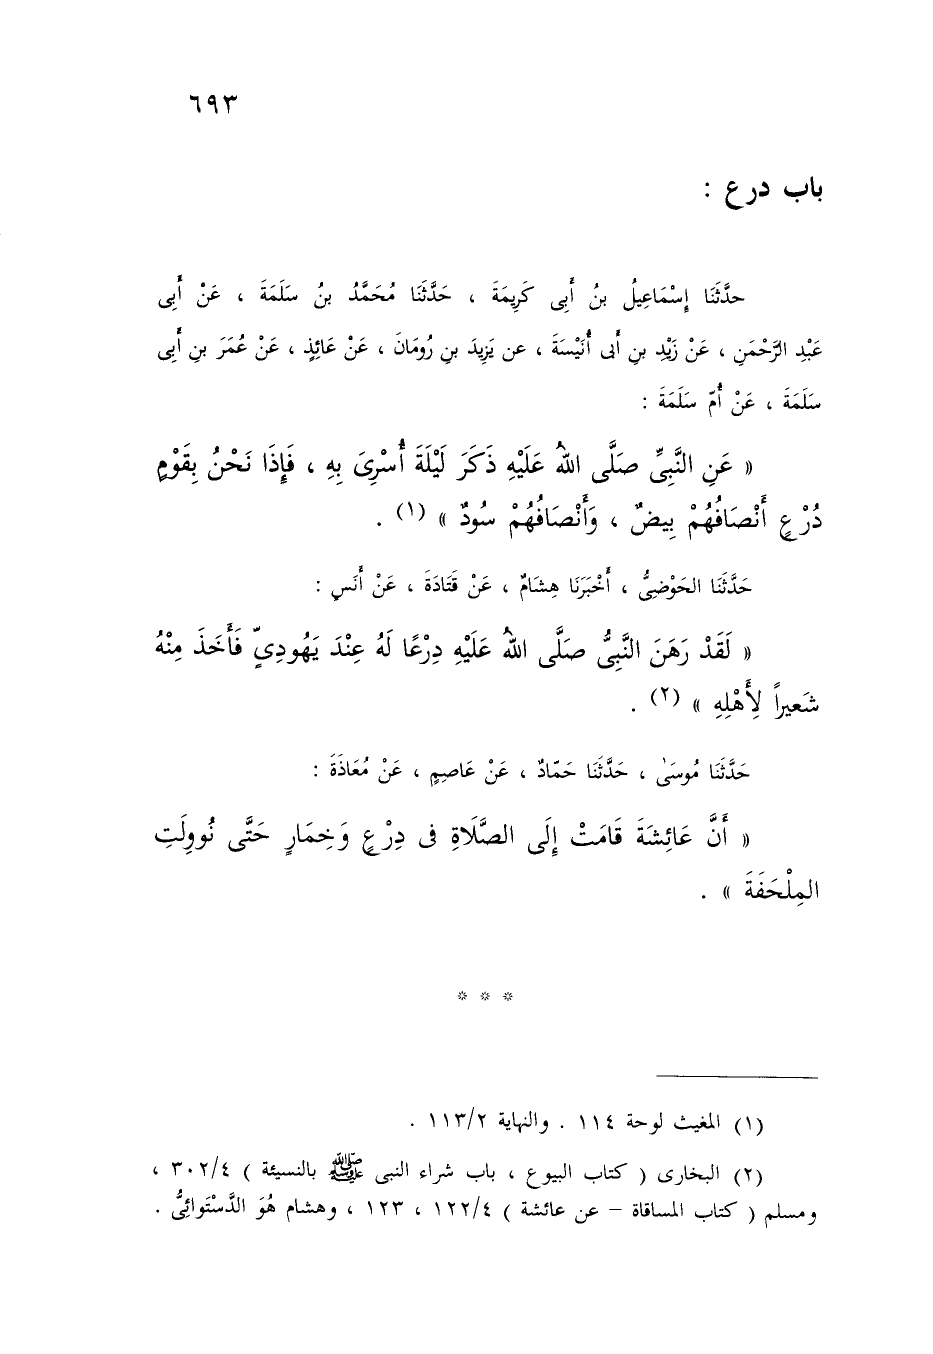 ٦٩٣
باب درع :
حدَّثَنَا إِسْمَاعِيلُ بنُ أَبِى كَرِيمَةَ ، حَدَّثَنَا مُحَمَّدُ بنُ سَلَمَةَ ، عَنْ أَبِى
عَبْدِ الرَّحْمَنِ ، عَنْ زَيْدِ بنِ أَبى أُنَيْسَةَ ، عن يَزِيدَ بنِ رُومَانَ ، عَنْ عَائِذٍ ، عَنْ عُمَرَ بنِ أَبِى
سَلَمَةَ ، عَنْ أُمّ سَلَمَةَ :
« عَنِ النَّبِىِّ صَلَّى اللهُ عَلَيْهِ ذَكَرَ لَيْلَةَ أُسْرِىَ بِهِ ، فَإِذَا نَحْنُ بِقَوْمٍ
دُرْعٍ أَنْصَافُهُمْ بِيضٌ ، وَأَنْصَافُهُمْ سُودٌ » (١) .
حَدَّثَنَا الحَوْضِىُّ ، أَخْبَرَنَا هِشَامٌ ، عَنْ قَتَادَةَ ، عَنْ أَنَسٍ :
« لَقَدْ رَهَنَ النَّبِىُّ صَلَّى اللهُ عَلَيْهِ دِرْعًا لَهُ عِنْدَ يَهُودِىٍّ فَأَخَذَ مِنْهُ
شَعيراً لِأَهْلِهِ » (٢) .
حَدَّثَنَا مُوسَىٰ ، حَدَّثَنَا حَمّادٌ ، عَنْ عَاصِمٍ ، عَنْ مُعَاذَةَ :
« أَنَّ عَائِشَةَ قَامَتْ إِلَى الصَّلَاةِ فى دِرْعٍ وَخِمَارٍ حَتَّى نُووِلَتِ
المِلْحَفَةَ » .
* * *
(١) المغيث لوحة ١١٤ . والنهاية ١١٣/٢ .
(٢) البخارى ( كتاب البيوع ، باب شراء النبى ﷺ بالنسيئة ) ٣٠٢/٤ ،
ومسلم ( كتاب المساقاة – عن عائشة ) ١٢٢/٤ ، ١٢٣ ، وهشام هُوَ الدَّسْتَوائِىُّ .